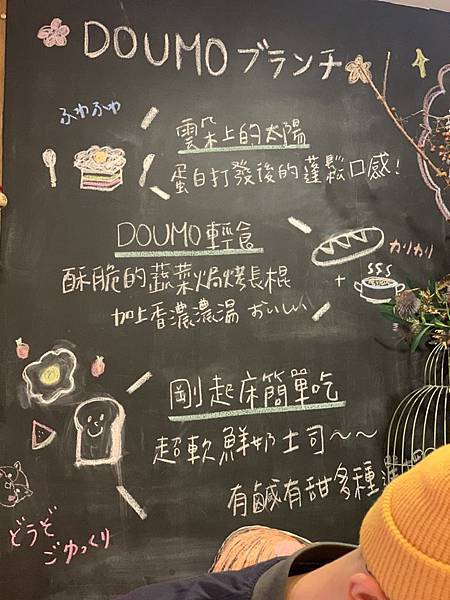 DOUMO ブランチ
ふわふわ
雲朵上的太陽
蛋白打發後的蓬鬆口感!
DOUMO輕食
カリカリ
酥脆的蔬菜焗烤長棍
+
加上香濃濃湯 おいしい
剛起床簡單吃
超軟鮮奶土司~~
有鹹有甜多種
どうぞ
ごゆっくり